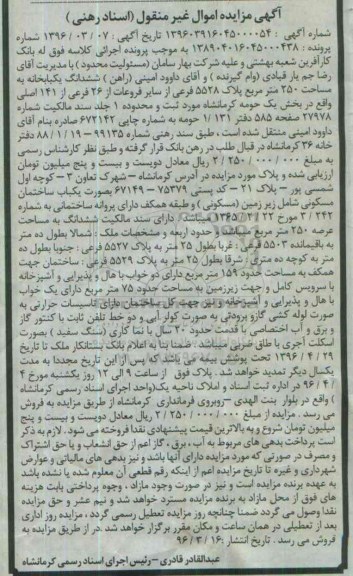 آگهی مزایده اموال غیر منقول (اسناد رهنی)
شماره آگهی : ۱۳۹۶۰۳۹۱۶۰۴۵۰۰۰۰۵۴ تاریخ آگهی : ۱۳۹۶/۰۳/۰۷ شماره
پرونده : ۱۳۸۹۰۴۰۱۶۰۴۵۰۰۰۴۳۸ به موجب پرونده اجرائی کلاسه فوق له بانک
کارآفرین شعبه بهشتی و علیه شرکت بهار سامان (مسئولیت محدود) با مدیریت آقای
رضا جم یار قبادی (وام گیرنده) و آقای داوود امینی (راهن) ششدانگ یکبابخانه به
مساحت ۲۵۰ متر مربع پلاک ۵۵۲۸ فرعی از سایر فروعات از ۲۶ فرعی از ۱۴۱ اصلی
واقع در بخش یک حومه کرمانشاه مورد ثبت و محدوده ۱ جلد سند مالکیت شماره
۲۷۹۷۸ صفحه ۵۸۵ دفتر ۱/۱۳۱ حومه به شماره چاپی ۶۷۲۱۴۲ صادره بنام آقای
داوود امینی منتقل شده است ، طبق سند رهنی شماره ۹۹۱۳۵ – ۸۸/۱/۱۹ دفتر
خانه ۳۶ کرمانشاه در قبال طلب در رهن بانک قرار گرفته و طبق نظر کارشناس رسمی
به مبلغ ۲/۲۵۰/۰۰۰/۰۰۰ ریال معادل دویست و بیست و پنج میلیون تومان
ارزیابی شده و پلاک مورد مزایده در آدرس کرمانشاه – شهرک تعاون ۳ – کوچه اول
شمسی پور – پلاک ۲۱ – کد پستی ۷۵۳۷۹ – ۶۷۱۴۹ بصورت یکباب ساختمان
مسکونی شامل زیر زمین (مسکونی) و طبقه همکف دارای پروانه ساختمانی به شماره
۳/۲۴۲ مورخ ۱۳۶۵/۲/۲۲ میباشد . دارای سند مالکیت ششدانگ به مساحت
عرصه ۲۵۰ متر مربع میباشد . حدود اربعه و مشخصات ملک : شمالا بطول ده متر
به باقیمانده ۵۵۰۳ فرعی : غربا بطول ۲۵ متر به پلاک ۵۵۲۷ فرعی : جنوبا بطول ده
متر به کوچه ده متری : شرقا بطول ۲۵ متر به پلاک ۵۵۲۹ فرعی : ساختمان جهت
همکف به مساحت حدود ۱۵۹ متر مربع دارای دو خواب با هال و پذیرایی و آشپزخانه
با سرویس کامل و جهت زیرزمین به مساحت حدود ۷۵ متر مربع دارای یک خواب
با هال و پذیرایی و آشپزخانه و نیز جهت کل ساختمان دارای تاسیسات حرارتی به
صورت لوله کشی گازو برودتی به صورت کولر آبی و دو خط تلفن ثابت با کنتور گاز
و برق و آب اختصاصی با قدمت حدود ۲۰ سال با نما کاری (سنگ سفید) بصورت
اسکلت آجری با طاق ضربی میباشد . ضمنا بنا به اعلام بانک بستانکار ملک تا تاریخ
۱۳۹۶/۴/۲۹ تحت پوشش بیمه می باشد که پس از این تاریخ مجددا به مدت
یکسال دیگر تمدید خواهد شد . پلاک فوق از ساعت ۹ الی ۱۲ روز یکشنبه مورخ ۴
/۴/۹۶ در اداره ثبت اسناد و املاک ناحیه یک(واحد اجرای اسناد رسمی کرمانشاه
) واقع در بلوار بنت الهدی –روبروی فرمانداری کرمانشاه از طریق مزایده به فروش
می رسد . مزایده از مبلغ ۲/۲۵۰/۰۰۰/۰۰۰ ریال معادل دویست و بیست و پنج
میلیون تومان شروع و به بالاترین قیمت پیشنهادی نقدا فروخته می شود . لازم به ذکر
است پرداخت بدهی های مربوط به آب ، برق ، گاز اعم از حق انشعاب و یا حق اشتراک
و مصرف در صورتی که مورد مزایده دارای آنها باشد و نیز بدهی های مالیاتی و عوارض
شهرداری و غیره تا تاریخ مزایده اعم از اینکه رقم قطعی آن معلوم شده یا نشده باشد
به عهده برنده مزایده است و نیز در صورت وجود مازاد ، وجوه پرداختی بابت هزینه
های فوق از محل مازاد به برنده مزایده مسترد خواهد شد و نیم عشر و حق مزایده
نقدا وصول می گردد ضمنا چنانچه روز مزایده تعطیل رسمی گردد ، مزایده روز اداری
بعد از تعطیلی در همان ساعت و مکان مقرر برگزار خواهد شد .در از طریق مزایده به
فروش می رسد . تاریخ انتشار ۹۶/۳/۱۶:
عبدالقادر قادری –رئیس اجرای اسناد رسمی کرمانشاه